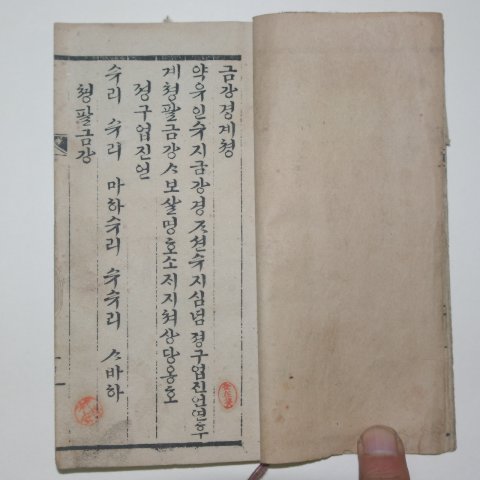 금강경계쳥
약유인슈지금강경ᄌᆞ션슈지심념졍구업진언연후
계쳥팔금강ᄉᆞ보살명호소재지쳐상당옹호
졍구업진언
슈리 슈리 마하슈리 슈슈리 ᄉᆞ바하
쳥팔금강